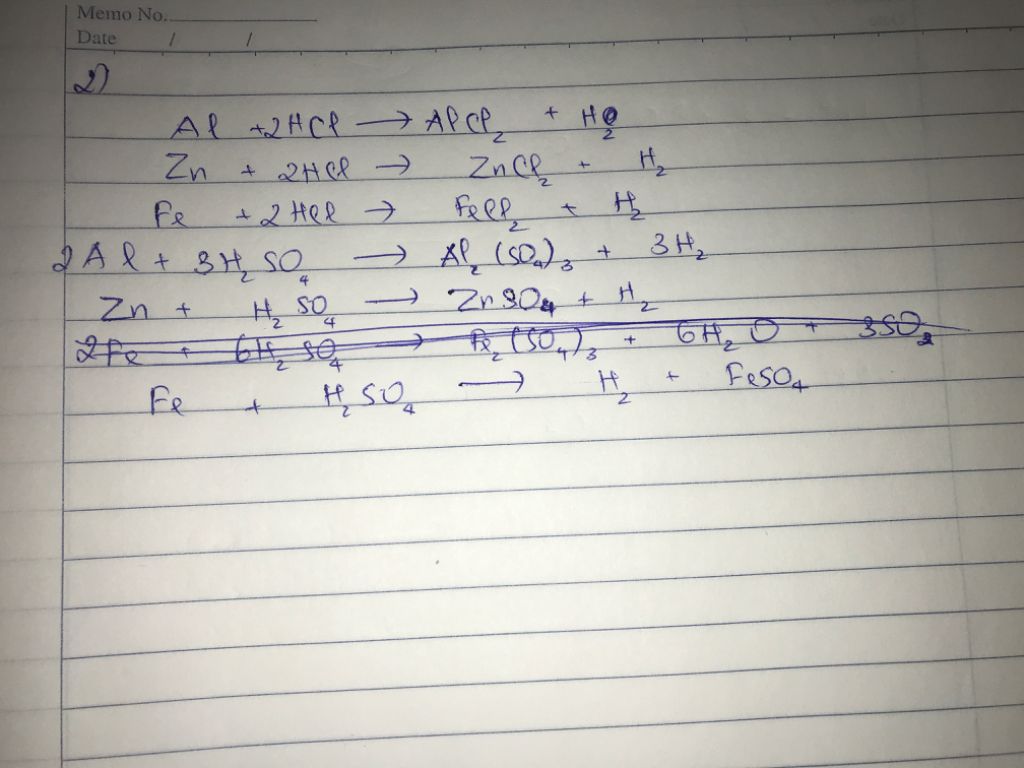 Memo No.
Date / /
2)
Al + 2HCl → AlCl₂ + H₂
Zn + 2HCl → ZnCl₂ + H₂
Fe + 2HCl → FeCl₂ + H₂
2Al + 3H₂SO₄ → Al₂(SO₄)₃ + 3H₂
Zn + H₂SO₄ → ZnSO₄ + H₂
2Fe + 6H₂SO₄ → Fe₂(SO₄)₃ + 6H₂O + 3SO₂
Fe + H₂SO₄ → H₂ + FeSO₄